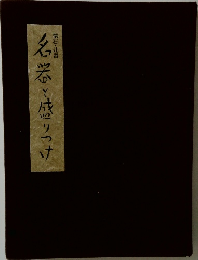 名器と盛りつけ